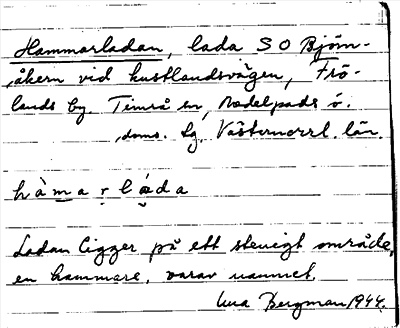 Hammarladan, lada S O Björn-
åkern vid kustlandsvägen, Frö-
lands by. Timrå sn, Medelpads ö.
doms. sg. Västernorrl. län.
hàmarlàda
Ladan ligger på ett stenigt område,
en hammare, varav namnet.
Bergman 1944.